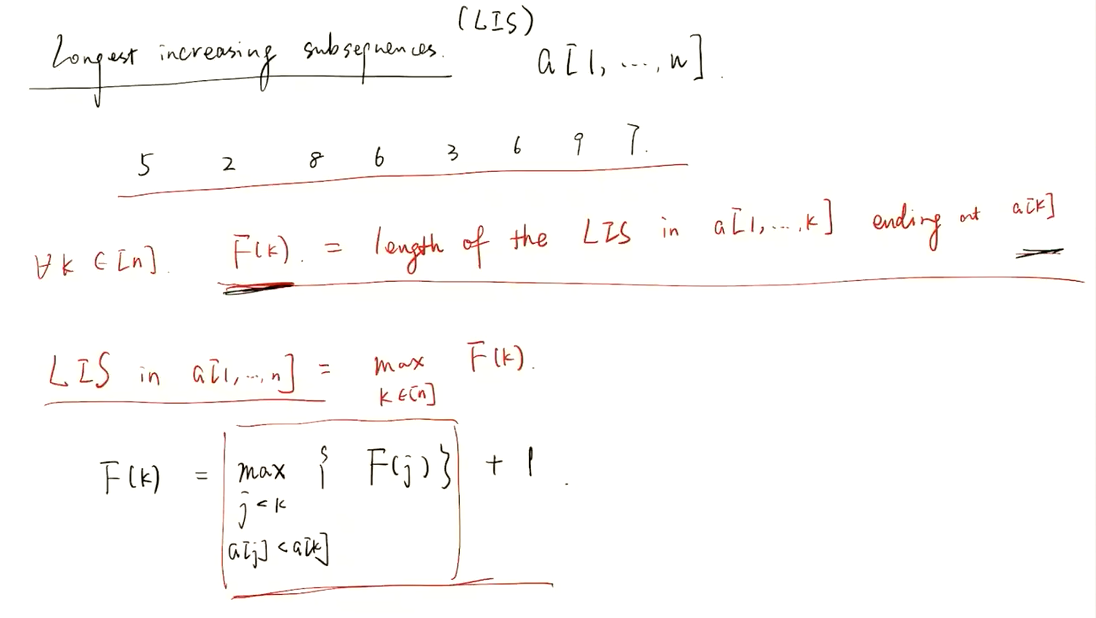 Longest increasing subsequences. (LIS) a[1, ..., n].
5 2 8 6 3 6 9 7.
∀k ∈ [n]. F(k). = length of the LIS in a[1, ..., k] ending at a[k]
LIS in a[1, ..., n] = max F(k).
k ∈ [n]
F(k) = max { F(j) } + 1.
j < k
a[j] < a[k]